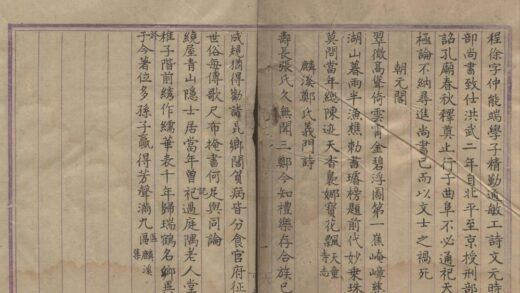 程徐字仲能端學子精勤通敏工詩文元時
部尚書致仕洪武二年自北平至京授刑部
詔孔廟春秋釋奠止行于曲阜不必通祀天
極論不納尋進尚書已而以文士之禍死
朝元閣
翠微高聳倚雲霄金碧浮圖第一蕉崦嶂
湖山暮雨半漁樵勅書璿榜題前代妙乘珠
莫問當年總陳迹天香裊娜寶花飄天童寺志
麟溪鄭氏義門詩
壽長張氏久無聞三鄭令如禮樂存合族已
成規猶得勸諸昆鄉閭貧病皆分食官府征
世俗每傳歌尺布掩書何足與同論
繞屋青山隱士居當年曾祀過庭閭老人堂記
稚子階前綉作繻華表千年歸瑞鶴名鄉異
子今著位多孫子贏得芳聲滿九區麟溪集